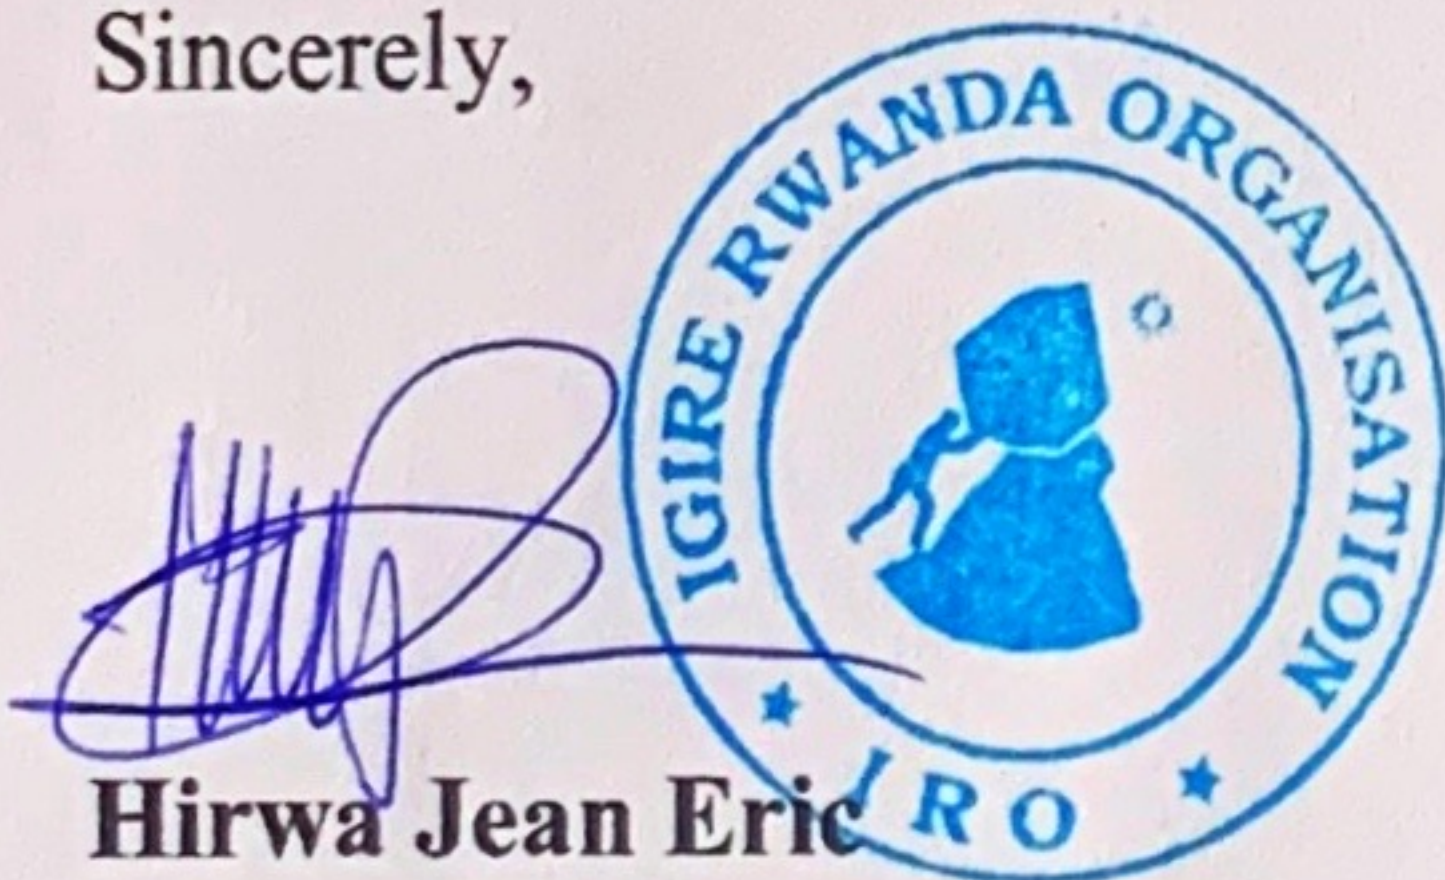 Sincerely,
IGIRE RWANDA ORGANISATION
Hirwa Jean Eric
IRO